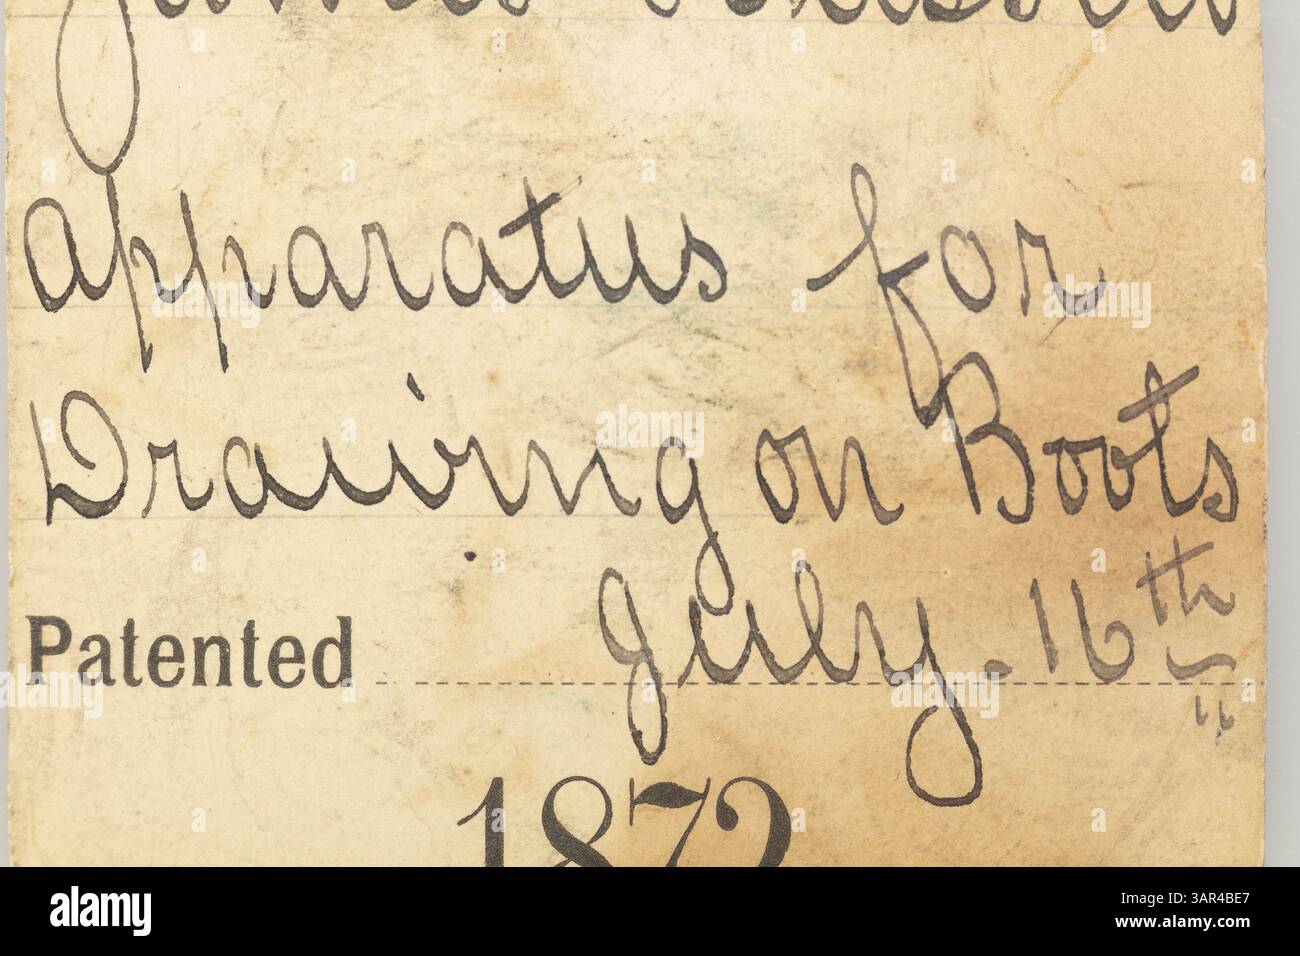 apparatus for
Drawing on Boots
Patented July. 16th
1872
alamy
Image ID: 3AR4BE7
www.alamy.com